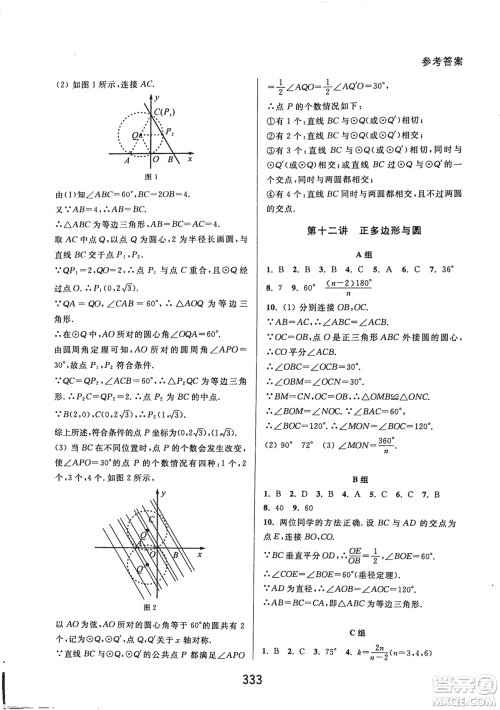 参考答案
(2) 如图1所示,连接 AC.
y
C(P₁)
Q
P₂
A
O
B
x
图1
由(1)知∠ABC=60°,BC=2OB=4.
又∵AB=4,∴AB=BC.
∴△ABC 为等边三角形,AC=BC=4.
取 AC 中点 Q,以点 Q 为圆心,2 为半径长画圆,与
直线 BC 交于点 P₁,P₂.
∵QP₁=2,∴点 P₁ 与点 C 重合,且⊙Q 经过点 O.
∴P₁(0,2√3).
∵QA=QO,∠CAB=60°,∴△AOQ 为等边三
角形.
∴在⊙Q 中,AO 所对的圆心角∠AQO=60°.
由圆周角定理可知,AO 所对的圆周角∠APO=
30°,故点 P₁,P₂ 符合条件.
∵QC=QP₂,∠ACB=60°,∴△P₂QC 为等边三角
形.∴P₂C=QP₂=2.∴点 P₂ 为 BC 的中点.
∵B(2,0),C(0,2√3),∴P₂(1,√3).
综上所述,符合条件的点 P 坐标为(0,2√3),(1,√3).
(3) 当 BC 在不同位置时,点 P 的个数会发生改变,
使∠APO=30°的点 P 的个数情况有四种:1 个、2 个、
3 个、4 个.如图2所示.
y
Q
A
O
B
x
Q′
图2
以 AO 为弦,AO 所对的圆心角等于60°的圆共有2
个,记为⊙Q,⊙Q′,点 Q,Q′关于 x 轴对称.
∵直线 BC 与⊙Q,⊙Q′的公共点 P 都满足∠APO
=1/2∠AQO=1/2∠AQ′O=30°,
∴点 P 的个数情况如下:
①有1个:直线 BC 与⊙Q(或⊙Q′)相切;
②有2个:直线 BC 与⊙Q(或⊙Q′)相交;
③有3个:直线 BC 与⊙Q(或⊙Q′)相切,同时与
⊙Q(或⊙Q′)相交;直线 BC 过⊙Q 与⊙Q′的一个
交点,同时与两圆都相交;
④有4个:直线 BC 同时与两圆都相交,且不过两圆
的交点.
第十二讲 正多边形与圆
A 组
1. B 2. B 3. B 4. B 5. D 6. C 7. 36°
8. 7 9. 60° (n-2)180°/n
10. (1) 分别连接 OB,OC.
∵OC=OB,∴点 O 是正三角形 ABC 外接圆圆心.
∴CO 平分∠ACB.
∴∠OBC=∠OCB=30°.
∴∠OBM=∠OCN=30°.
∵BM=CN,OB=OC,∴△OMB≌△ONC.
∴∠BOM=∠NOC.
∵∠BAC=60°,∴∠BOC=2∠BAC=120°.
∴∠MON=∠BOC=120°.
(2) 90° 72° (3) ∠MON=360°/n
B 组
1. B 2. D 3. B 4. A 5. B 6. A 7. B
8. 40 9. 60
10. 两位同学的方法正确.设 BC 与 AD 的交点为
点 E,连接 BO,CO.
∵BC 垂直平分 OD,∴cos∠BOE=OE/OB=1/2.
∴∠BOE=60°.
∴∠COE=∠BOE=60°(垂径定理).
∵AD 为直径,∴∠AOB=∠AOC=120°.
∴AB=BC=CA.
∴△ABC 为等边三角形.
C 组
1. B 2. B 3. 75° 4. k=2n/(n-2)(n=3,4,6)
333
答案圈
MXQE.COM